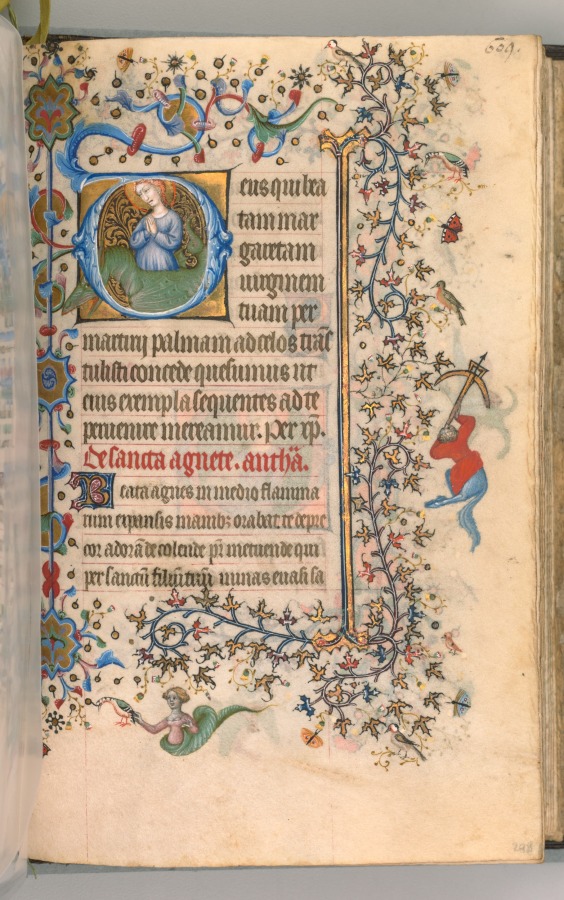 609.
Deus qui bea
tam mar
garetam
uirginem
tuam per
martirii palmam ad celos trās
tulisti concede quesumus ut
eius exempla sequentes ad te
peruenire mereamur. Per xp̄.
De sancta agnete. anthā.
Beata agnes in medio flamma
rum expansis manibȝ orabat te depre
cor adorāde colende pr̄ metuende qui
per sanctū filiū tuū minas euasi sa
298